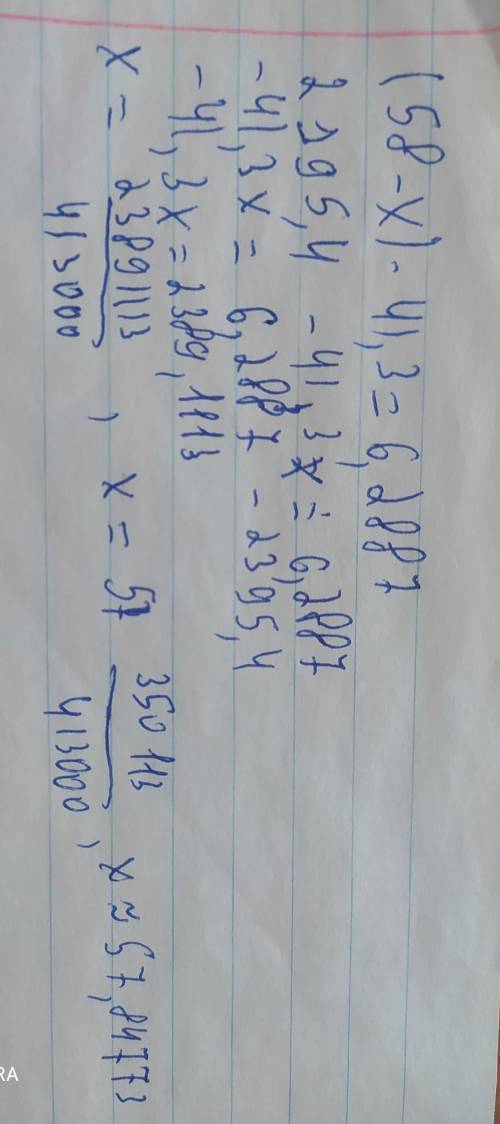 (58-x)·41,3=6,2887
2395,4 -41,3x=6,2887
-41,3x = 6,2887 - 2395,4
-41,3x=2389,1113
x = 23891113/413000, x=57 350113/413000, x≈57,84773
RA